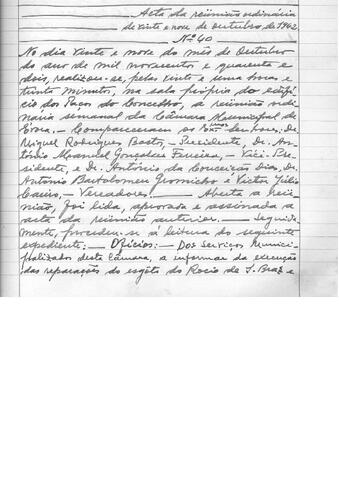 Acta da reunião ordinária
de vinte e nove de Outubro de 1942
Nº 40
No dia vinte e nove do mês de Outubro
do ano de mil novecentos e quarenta e
dois, realizou-se, pelas vinte e uma horas e
trinta minutos, na sala própria do edifí-
cio dos Paços do Concelho, a reünião ordi-
nária semanal da Câmara Municipal de
Évora. — Compareceram os Exmos Senhores, Dr.
Miguel Rodrigues Bastos, — Presidente, Dr. An-
tónio Manuel Gonçalves Ferreira, — Vice-Pre-
sidente, e Dr. António da Conceição Dias, Dr.
António Bartolomeu Gromicho e Victor Júlio
Vereadores. — Aberta a reü-
nião, foi lida, aprovada e assinada a
acta da reünião anterior. — Seguida-
mente, procedeu-se á leitura do seguinte
expediente: — Ofícios: — Dos Serviços Munici-
palizados desta Câmara, a informar da execução
das reparações do esgôto do Rocio de S. Braz e